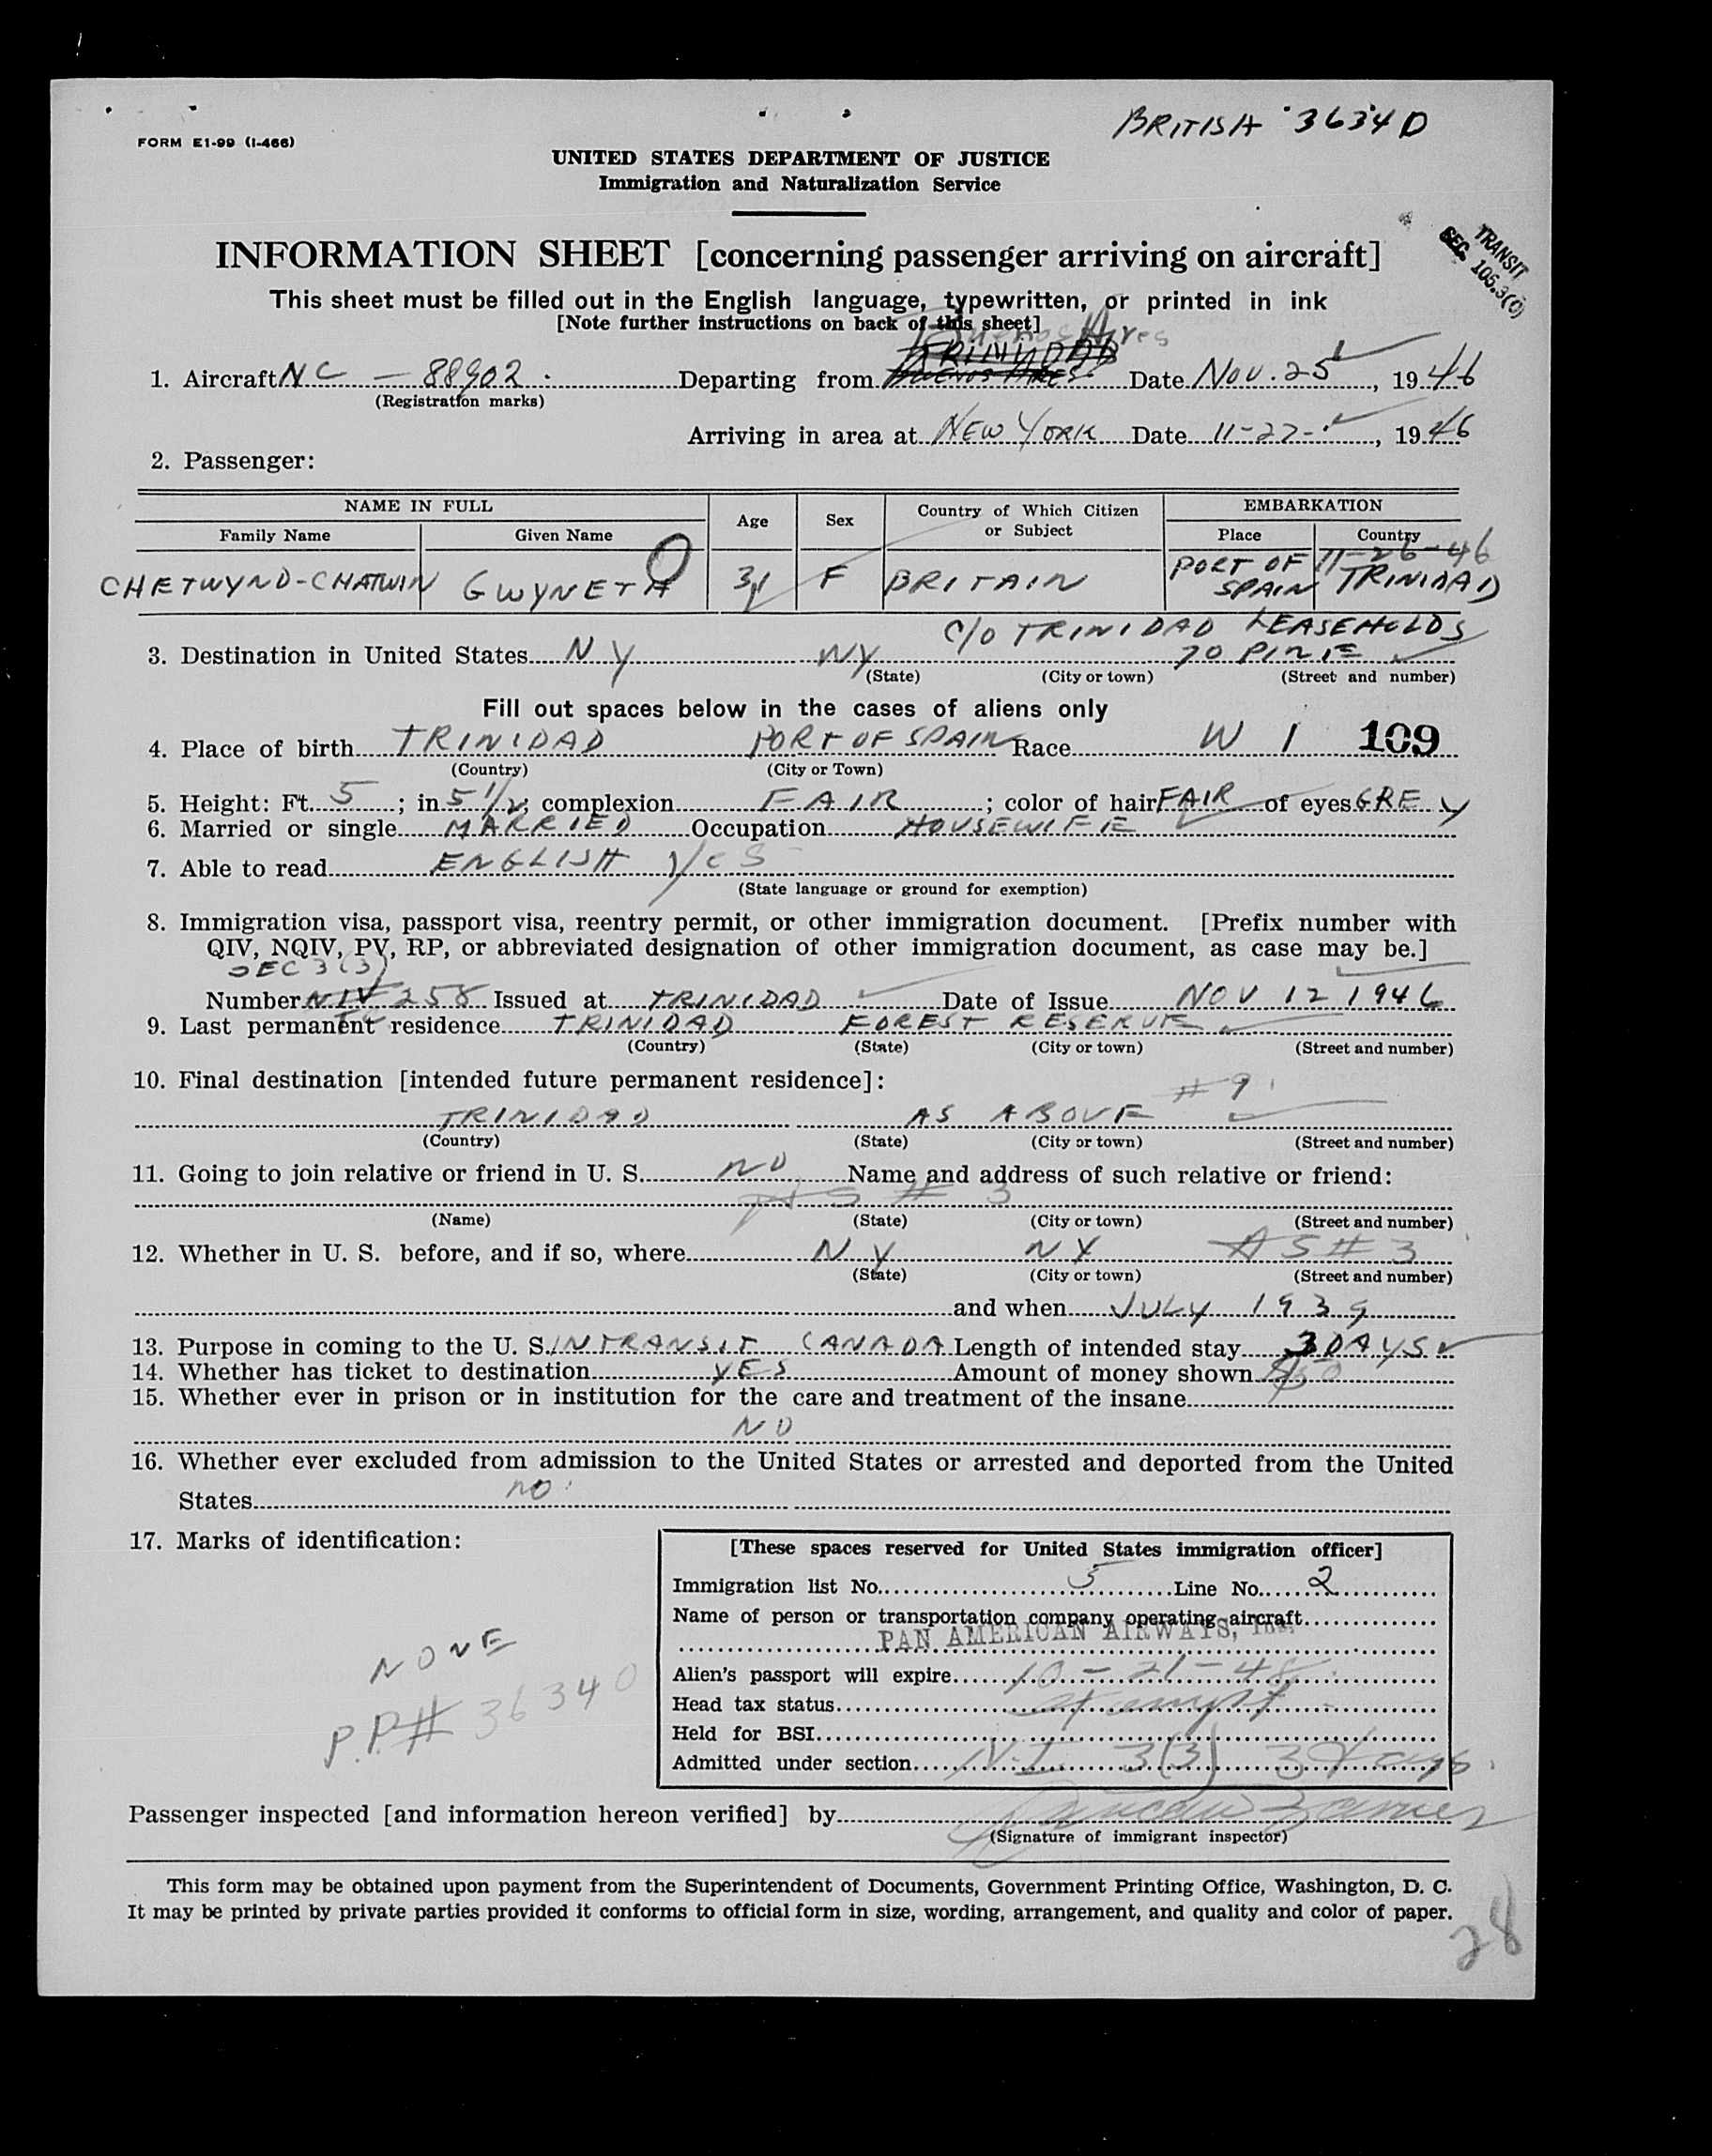 BRITISH 3634D
FORM E1-99 (I-466)
UNITED STATES DEPARTMENT OF JUSTICE
Immigration and Naturalization Service
TRANSIT
SEC. 105.3(0)
INFORMATION SHEET [concerning passenger arriving on aircraft]
This sheet must be filled out in the English language, typewritten, or printed in ink
[Note further instructions on back of this sheet]
Buenos Ayres
TRINIDAD
1. Aircraft NC - 88902. Departing from BUENOS AIRES Date Nov. 25, 1946
(Registration marks)
Arriving in area at NEW YORK Date 11-27-, 1946
2. Passenger:
NAME IN FULL Age Sex Country of Which Citizen or Subject EMBARKATION
Family Name Given Name Place Country
11-26-46
CHETWYND-CHATWIN GWYNETH F BRITAIN PORT OF SPAIN TRINIDAD
C/O TRINIDAD LEASEHOLDS
3. Destination in United States NY NY 70 PINE
(State) (City or town) (Street and number)
Fill out spaces below in the cases of aliens only
4. Place of birth TRINIDAD PORT OF SPAIN Race W I 109
(Country) (City or Town)
5. Height: Ft. 5; in. 5 1/2; complexion FAIR; color of hair FAIR of eyes GREY
6. Married or single MARRIED Occupation HOUSEWIFE
7. Able to read ENGLISH Yes
(State language or ground for exemption)
8. Immigration visa, passport visa, reentry permit, or other immigration document. [Prefix number with
QIV, NQIV, PV, RP, or abbreviated designation of other immigration document, as case may be.]
SEC 3(3)
Number NIV 258 Issued at TRINIDAD Date of Issue NOV 12 1946
9. Last permanent residence TRINIDAD FOREST RESERVE
(Country) (State) (City or town) (Street and number)
10. Final destination [intended future permanent residence]:
#9
TRINIDAD AS ABOVE
(Country) (State) (City or town) (Street and number)
11. Going to join relative or friend in U. S. NO Name and address of such relative or friend:
AS # 3
(Name) (State) (City or town) (Street and number)
12. Whether in U. S. before, and if so, where NY NY AS # 3
(State) (City or town) (Street and number)
and when JULY 1939
13. Purpose in coming to the U. S. IN TRANSIT CANADA Length of intended stay 3 DAYS
14. Whether has ticket to destination YES Amount of money shown
15. Whether ever in prison or in institution for the care and treatment of the insane
NO
16. Whether ever excluded from admission to the United States or arrested and deported from the United
States no
17. Marks of identification:
NONE
P.P.# 36340
[These spaces reserved for United States immigration officer]
Immigration list No. 5 Line No. 2
Name of person or transportation company operating aircraft
PAN AMERICAN AIRWAYS, Inc.
Alien's passport will expire 10-21-48
Head tax status exempt
Held for BSI
Admitted under section N.I. 3(3) 3 days.
Passenger inspected [and information hereon verified] by
(Signature of immigrant inspector)
This form may be obtained upon payment from the Superintendent of Documents, Government Printing Office, Washington, D. C.
It may be printed by private parties provided it conforms to official form in size, wording, arrangement, and quality and color of paper.
28